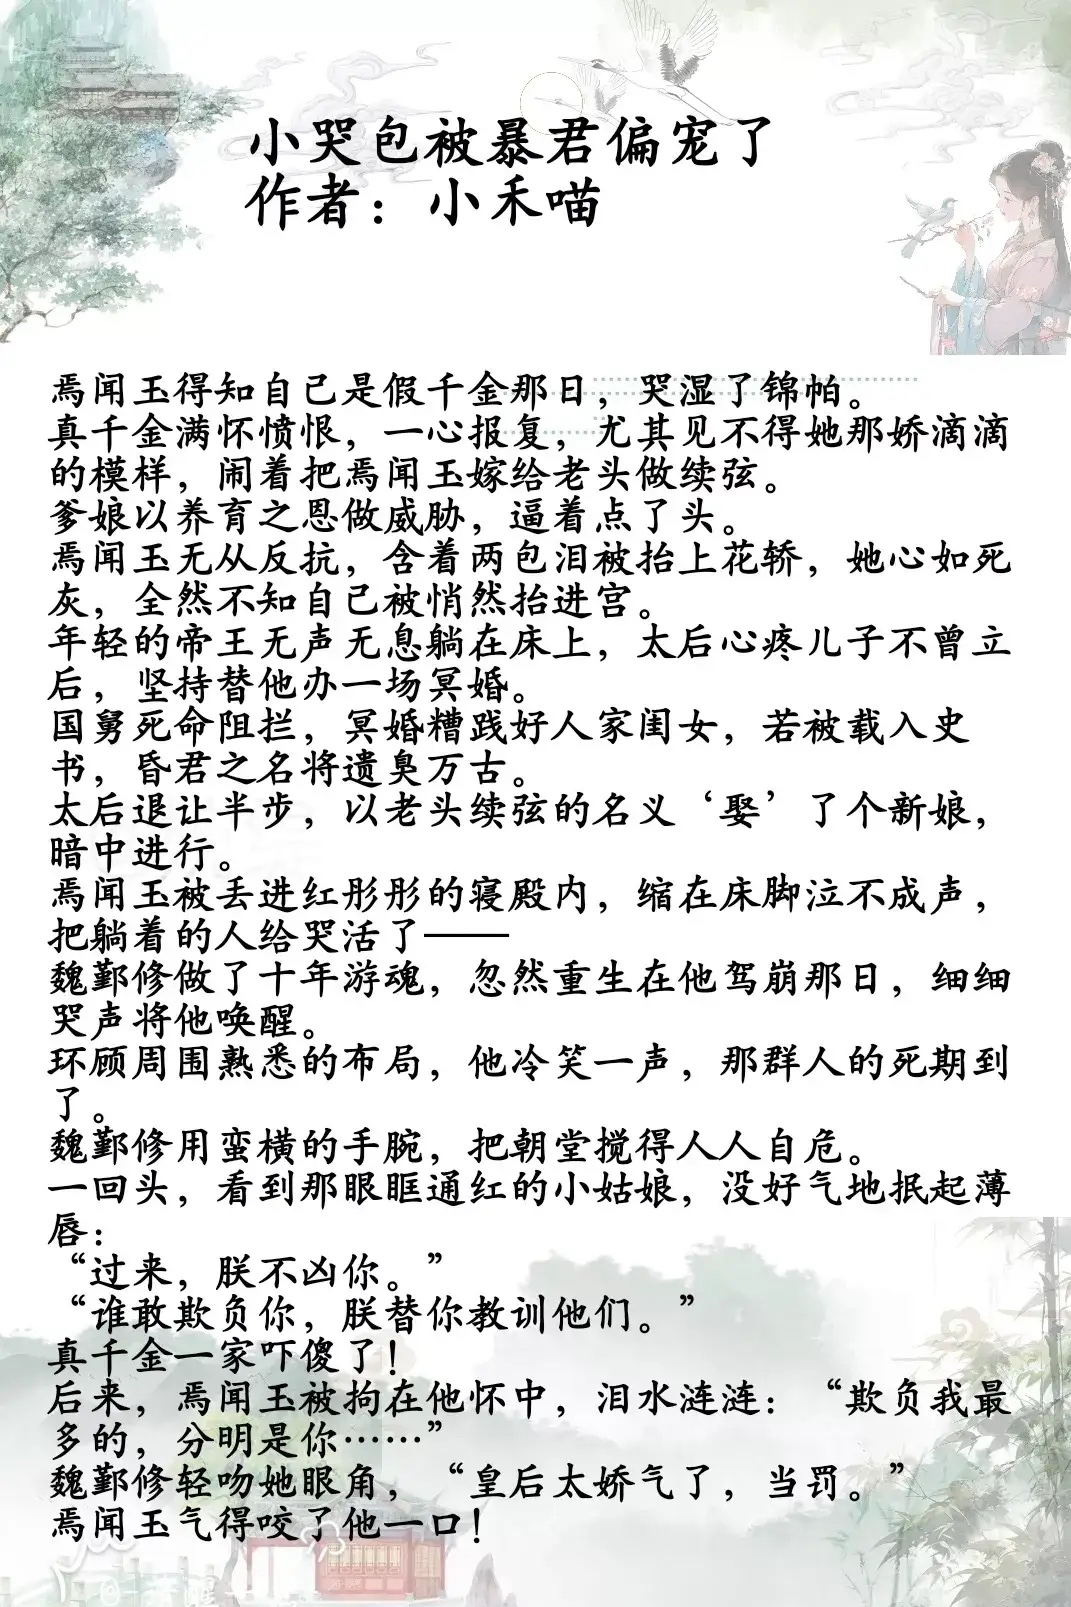 小哭包被暴君偏宠了
作者：小禾喵
焉闻玉得知自己是假千金那日，哭湿了锦帕。
真千金满怀愤恨，一心报复，尤其见不得她那娇滴滴
的模样，闹着把焉闻玉嫁给老头做续弦。
爹娘以养育之恩做威胁，逼着点了头。
焉闻玉无从反抗，含着两包泪被抬上花轿，她心如死
灰，全然不知自己被悄然抬进宫。
年轻的帝王无声无息躺在床上，太后心疼儿子不曾立
后，坚持替他办一场冥婚。
国舅死命阻拦，冥婚糟践好人家闺女，若被载入史
书，昏君之名将遗臭万古。
太后退让半步，以老头续弦的名义‘娶’了个新娘，
暗中进行。
焉闻玉被丢进红彤彤的寝殿内，缩在床脚泣不成声，
把躺着的人给哭活了——
魏鄞修做了十年游魂，忽然重生在他驾崩那日，细细
哭声将他唤醒。
环顾周围熟悉的布局，他冷笑一声，那群人的死期到
了。
魏鄞修用蛮横的手腕，把朝堂搅得人人自危。
一回头，看到那眼眶通红的小姑娘，没好气地抿起薄
唇：
“过来，朕不凶你。”
“谁敢欺负你，朕替你教训他们。”
真千金一家吓傻了！
后来，焉闻玉被拘在他怀中，泪水涟涟：“欺负我最
多的，分明是你……”
魏鄞修轻吻她眼角，“皇后太娇气了，当罚。”
焉闻玉气得咬了他一口！